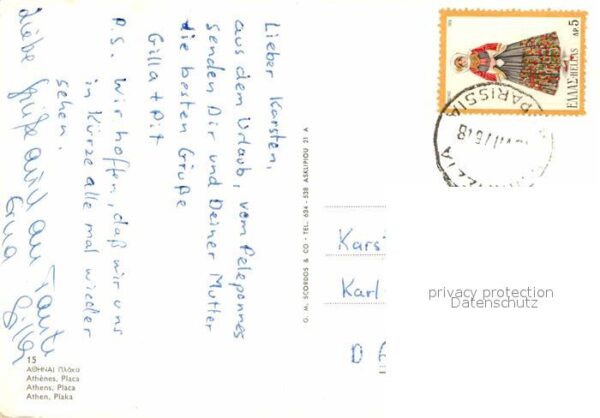 Lieber Karsten,
aus dem Urlaub, vom Peleponnes
senden Dir und Deiner Mutter
die besten Grüße
Gilla + Pit
P.S. Wir hoffen, daß wir uns
in Kürze alle mal wieder
sehen.
Liebe Grüße auch an Tante
Erna
Gilla
15
ΑΘΗΝΑΙ Πλάκα
Athènes, Placa
Athens, Placa
Athen, Plaka
G. M. SCORDOS & CO - TEL. 634 - 538 ASKLIPIOU 21 A
ΕΛΛΑΣ-HELLAS
ΔΡ. 5
PARISSIA
Kars
Karl
D
privacy protection
Datenschutz